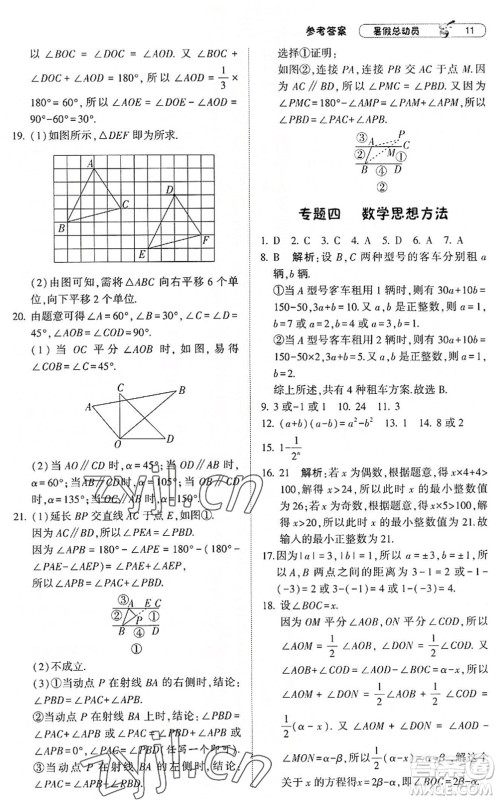 参考答案 暑假总动员 11
以∠BOC=∠DOC=∠AOD. 又因为
∠BOC+∠DOC+∠AOD=180°,所以∠AOD=1/3
×180°=60°,所以∠AOE=∠DOE-∠AOD=
90°-60°=30°.
19. (1)如图所示,△DEF即为所求.
A
D
C
B
F
E
(2)由图可知,需将△ABC向右平移6个单
位,向下平移2个单位.
20. 由题意可得∠A=60°,∠B=30°,∠C=∠D=
45°.
(1)当OC平分∠AOB时,如图,易得
∠COB=∠C=45°.
C
B
A
O
D
(2)当AO∥CD时,α=45°;当OB∥AB时,
α=60°;当AB∥CD时,α=105°;当OB∥CD
时,α=135°;当OC∥AB时,α=150°.
21. (1)延长BP交直线AC于点E,如图①.
因为AC∥BD,所以∠PEA=∠PBD.
因为∠APB=180°-∠APE=180°-(180°-
∠PAE-∠AEP)=∠PAE+∠AEP,
所以∠APB=∠PAC+∠PBD.
③ A E C
② P ①
B ④ D
①
(2)不成立.
(3)①当动点P在射线BA的右侧时,结论:
∠PBD=∠PAC+∠APB.
②当动点P在射线BA上时,结论:∠PBD=
∠PAC+∠APB或∠PAC=∠PBD+∠APB或
∠APB=0°,∠PAC=∠PBD(任写一个即可).
③当动点P在射线BA的左侧时,结论:
∠PAC=∠APB+∠PBD.
选择①证明:
如图②,连接PA,连接PB交AC于点M.因
为AC∥BD,所以∠PMC=∠PBD.又因为
∠PMC=180°-∠AMP=∠PAM+∠APM,所以
∠PBD=∠PAC+∠APB.
③ P
A C
② M ①
B ④ D
②
专题四 数学思想方法
1. D 2. C 3. C 4. A 5. D 6. A 7. A
8. B 解析:设B,C两种型号的客车分别租a
辆,b辆.
①当A型号客车租用1辆时,则有30a+10b=
150-50,3a+b=10.又a,b是正整数,则a=1,
b=7或a=2,b=4或a=3,b=1.
②当A型号客车租用2辆时,则有30a+10b=
150-50×2,3a+b=5.又a,b为正整数,则a=
1,b=2.
综上所述,共有4种租车方案.故选B.
9. 3或-1 10. 24 11. 3
12. (a+b)(a-b)=a²-b² 13. 1 14. 8或2
15. 1-1/2ⁿ
16. 21 解析:若x为偶数,根据题意,得x×4+4>
100,解得x>24,所以此时x的最小整数值
为26;若x为奇数,根据题意,得x×5>100,解
得x>20,所以此时x的最小整数值为21.所
以x的最小正整数值为21.
17. 因为|a|=3,|b|=1,所以a=±3,b=±1,所
以A,B两点之间的距离为3-1=2或-1-
(-3)=2或3-(-1)=4或1-(-3)=4.
18. 设∠BOC=x.
因为OM平分∠AOB,ON平分∠COD,所以
∠AOM=1/2∠AOB,∠DON=1/2∠COD,所以
∠AOM+∠DON+∠BOC=α-x,所以
∠AOM+∠DON=1/2∠AOB+1/2∠COD=
1/2(α-x).又因为∠AOM+∠DON=α-
∠MON=α-β,所以1/2(α-x)=α-β.解这个
关于x的方程得x=2β-α,即∠BOC=2β-α.
zyjl.cn